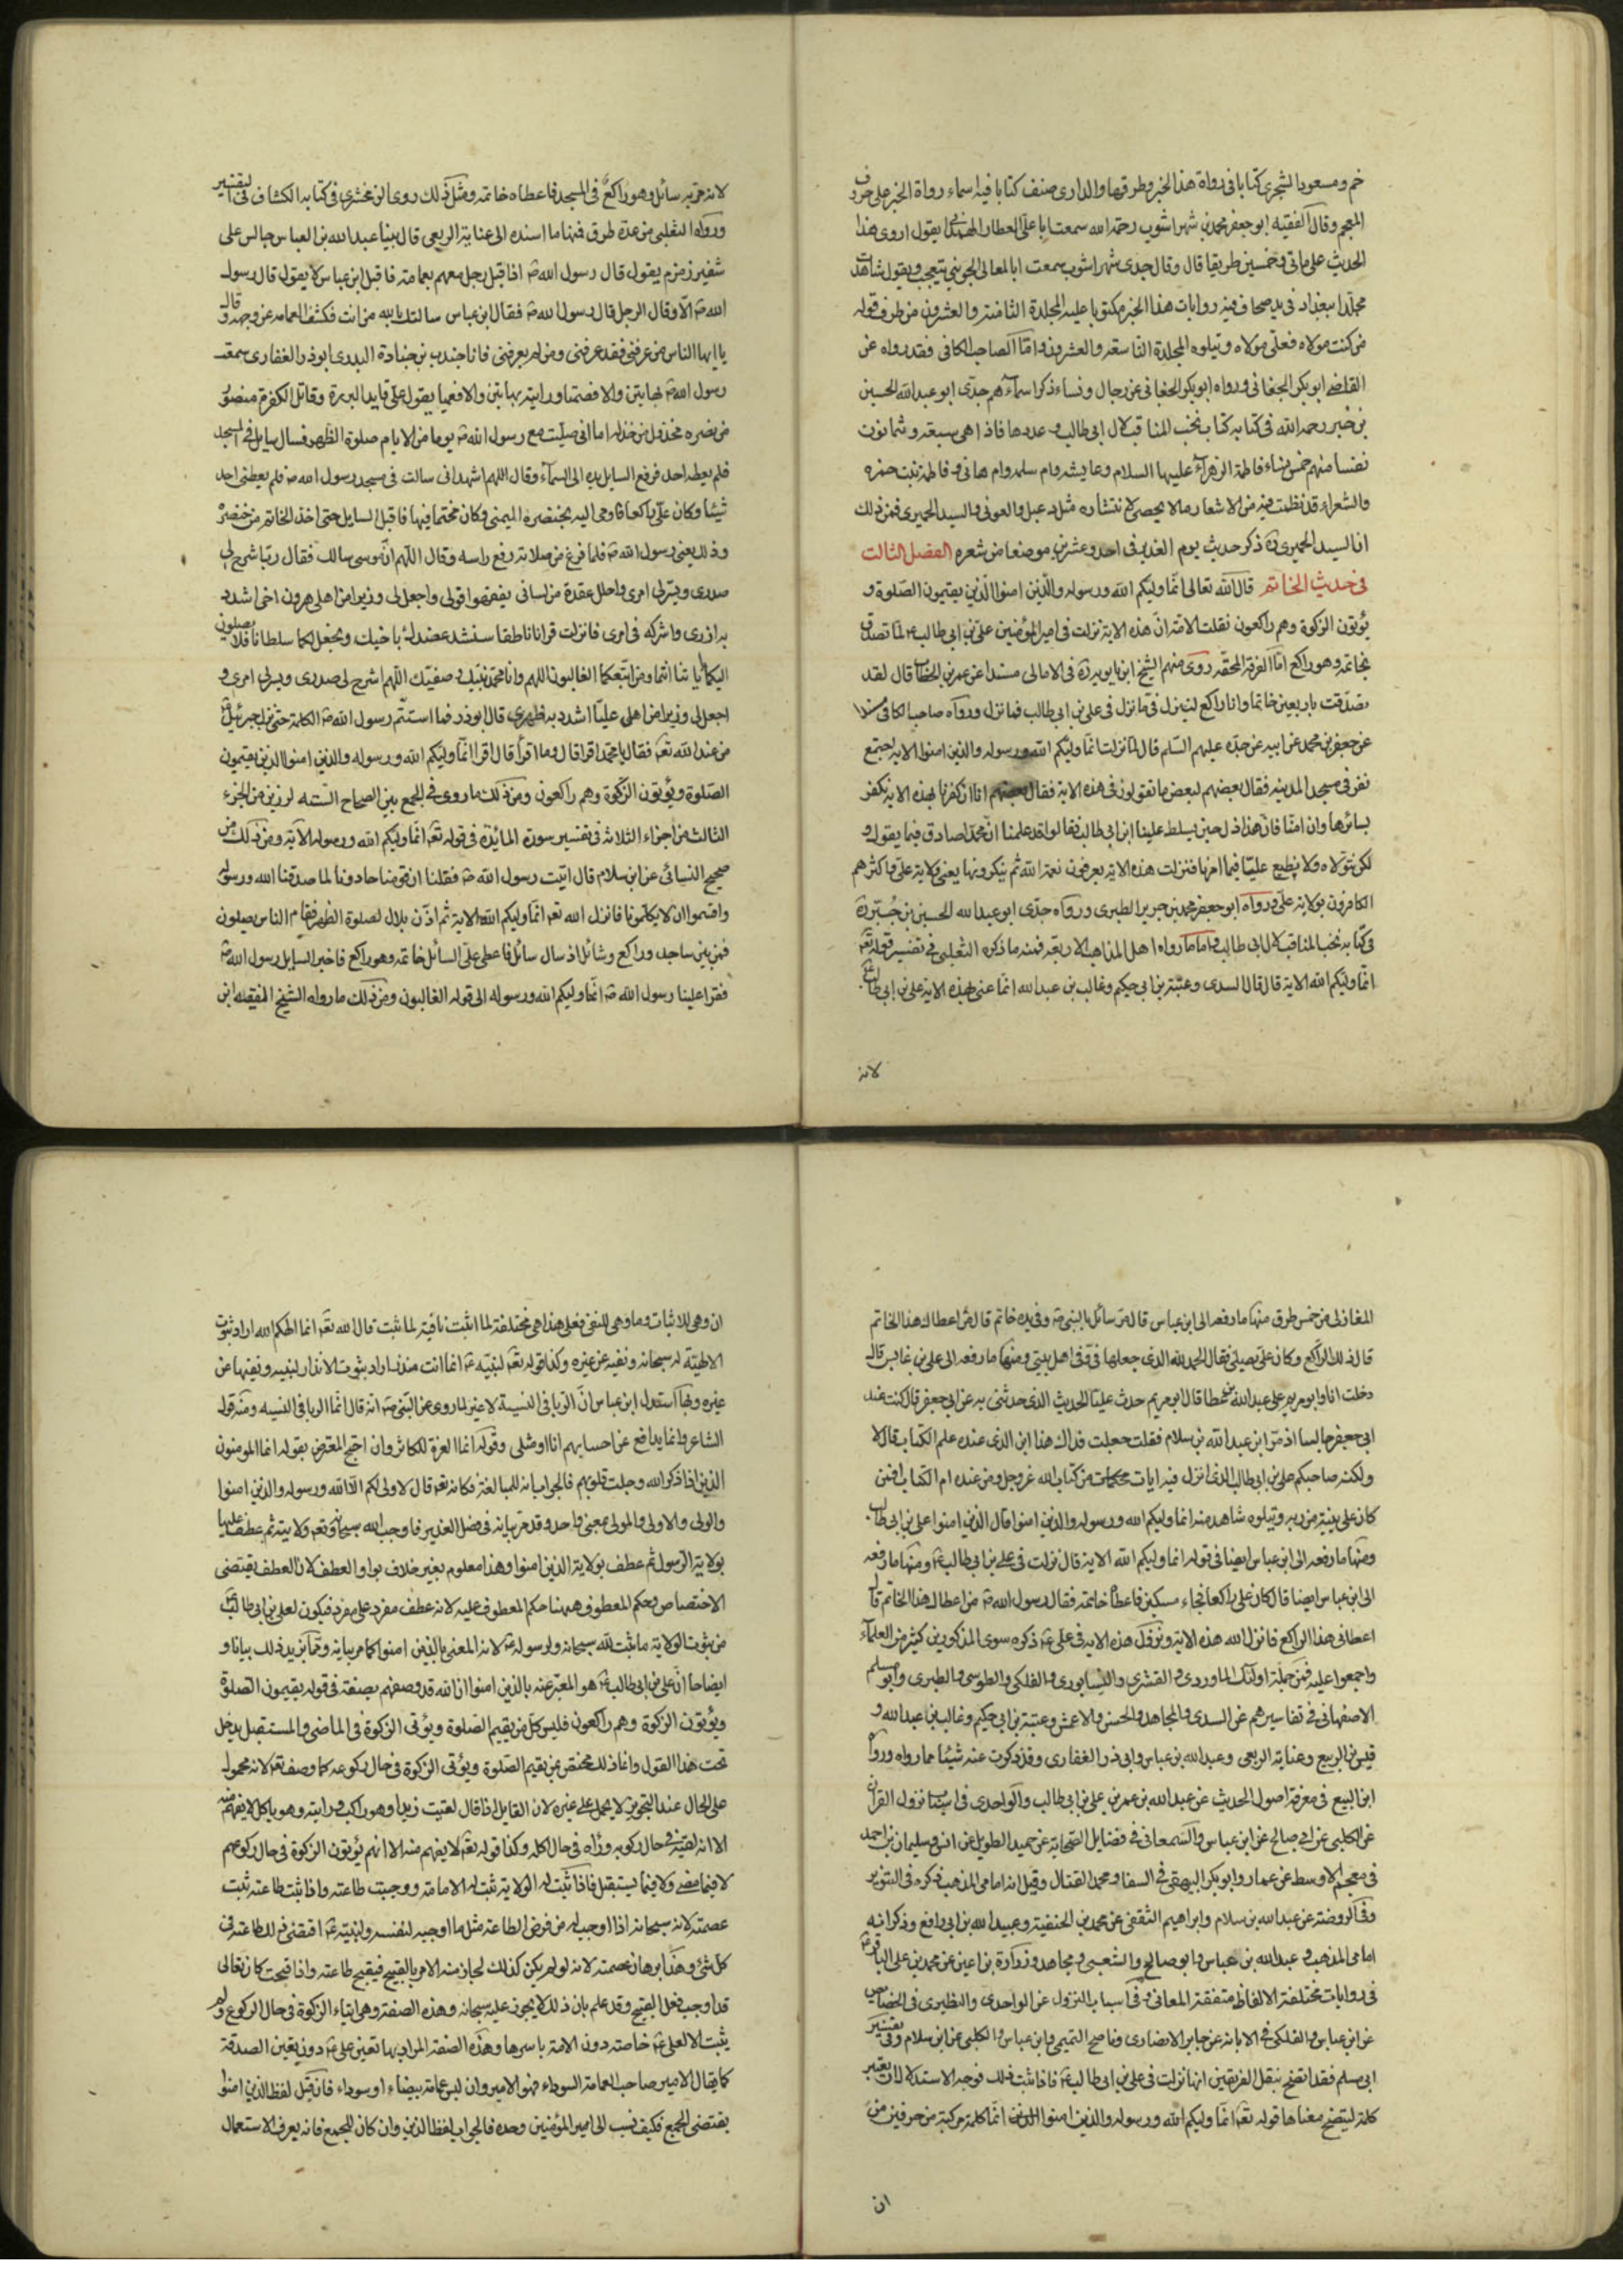 خم ومسعود الشجرى كتابا فى رواة هذا الخبر وطرقها والدارى صنف كتابا فيه اسماء رواة الخبر على حروف
المعجم وقال الفقيه ابو جعفر محمد بن شهراشوب رحمه الله سمعت ابا على العطار الهمدانى يقول اروى هذا
الحديث على ماتى وخمسين طريقا قال وقال جدى شهراشوب سمعت ابا المعالى الجوينى يتعجب ويقول شاهدت
مجلدا ببغداد فى يد صحاف فيه روايات هذا الخبر مكتوبا عليه المجلدة الثامنة والعشرون من طرق قوله
من كنت مولاه فعلى مولاه ويتلوه المجلدة التاسعة والعشرون واما الصاحب الكافى فقد رواه عن
القاضى ابو بكر الجعابى ورواه ابو بكر الجعابى عن رجال ونساء ذكر اسماءهم جدى ابو عبد الله الحسين
بن جبر رحمه الله فى كتابه كتاب نخب المناقب لال ابى طالب وعددها فاذا هى سبعة وثمانون
نفسا منهم خمس نساء فاطمة الزهراء عليها السلام وعايشه وام سلمه وام هانى وفاطمة بنت حمزه
والشعراء قد نظمت فيه من الاشعار ما لا يحصى لانتشاره مثل دعبل والعونى والسيد الحميرى فمن ذلك
ان السيد الحميرى ره ذكر حديث يوم الغدير فى احد وعشرين موضعا من شعره الفصل الثالث
فى حديث الخاتم قال الله تعالى انما وليكم الله ورسوله والذين امنوا الذين يقيمون الصلوة و
يؤتون الزكوة وهم راكعون نقلت الامة ان هذه الاية نزلت فى امير المؤمنين على بن ابى طالب ع لما تصدق
بخاتمه وهو راكع اما الفرقة المحقة روى منهم الشيخ ابن بابويه ره فى الامالى مسندا عن عمر بن الخطاب قال لقد
تصدقت باربعين خاتما وانا راكع لينزل فى ما نزل فى على بن ابى طالب فما نزل ورواه صاحب الكافى مسندا
عن جعفر بن محمد عن ابيه عن جده عليهم السلم قال لما نزلت انما وليكم الله ورسوله والذين امنوا الاية اجتمع
نفر فى مسجد المدينه فقال بعضهم لبعض ما تقولون فى هذه الاية فقال بعضهم انا ان كفرنا بهذه الاية نكفر
بسائرها وان امنا فان هذا ذل حين يسلط علينا ابن ابى طالب فقالوا قد علمنا ان محمدا صادق فيما يقول و
لكن نتولاه ولا نطيع عليا فيما امرنا فنزلت هذه الاية يعرفون نعمة الله ثم ينكرونها يعنى ولاية على واكثرهم
الكافرون بولاية على ورواه ابو جعفر محمد بن جرير الطبرى ورواه جدى ابو عبد الله الحسين بن جبير ره
فى كتابه نخب المناقب لال ابى طالب واما ما رواه اهل المذاهب الاربعة فمنه ما ذكره الثعلبى فى تفسير قوله تعه
انما وليكم الله الاية قال قال السدى وعتبة بن ابى حكيم وغالب بن عبد الله انما عنى بهذه الاية على بن ابى طالب ع
لانه
لانه مر به سائل وهو راكع فى المسجد فاعطاه خاتمه ومثل ذلك روى الزمخشرى فى كتابه الكشاف فى التفسير
ورواه الثعلبى من عدة طرق فمنها ما اسنده الى عناية الربعى قال بينا عبد الله بن العباس جالس على
شفير زمزم يقول قال رسول الله ص اذ اقبل رجل معهم بعمامته فاقبل ابن عباس لا يقول قال رسول
الله ص الا وقال الرجل قال رسول الله ص فقال ابن عباس سالتك بالله من انت فكشف العمامه عن وجهه وقال
يا ايها الناس من عرفنى فقد عرفنى ومن لم يعرفنى فانا جندب بن جنادة البدرى ابو ذر الغفارى سمعت
رسول الله ص بهاتين والا فصمتا ورايته بهاتين والا فعميا يقول على قايد البررة وقاتل الكفرة منصور
من نصره مخذول من خذله اما انى صليت مع رسول الله ص يوما من الايام صلوة الظهر فسال سايل فى المسجد
فلم يعطه احد فرفع السايل يده الى السماء وقال اللهم اشهد انى سالت فى مسجد رسول الله ص فلم يعطنى احد
شيئا وكان على راكعا فاومى اليه بخنصره اليمنى وكان مختما فيها فاقبل السايل حتى اخذ الخاتم من خنصره
وذلك بعين رسول الله ص فلما فرغ من صلاته رفع راسه وقال اللهم ان موسى سالك فقال رب اشرح لى
صدرى ويسر لى امرى واحلل عقدة من لسانى يفقهوا قولى واجعل لى وزيرا من اهلى هرون اخى اشدد
به ازرى واشركه فى امرى فانزلت قرانا ناطقا سنشد عضدك باخيك ونجعل لكما سلطانا فلا يصلون
اليكما باياتنا انتما ومن اتبعكما الغالبون اللهم وانا محمد نبيك وصفيك اللهم اشرح لى صدرى ويسر لى امرى و
اجعل لى وزيرا من اهلى عليا اشدد به ظهرى قال ابو ذر فما استتم رسول الله ص الكلمة حتى نزل جبرئيل ع
من عند الله تعه فقال يا محمد اقرا قال وما اقرا قال اقرا انما وليكم الله ورسوله والذين امنوا الذين يقيمون
الصلوة ويؤتون الزكوة وهم راكعون ومن ذلك ما روى فى الجمع بين الصحاح الستة لرزين من الجزء
الثالث من اجزاء الثلاثة فى تفسير سورة المائدة فى قوله تعه انما وليكم الله ورسوله الآية ومن ذلك من
صحيح النسائى عن ابن سلام قال اتيت رسول الله ص فقلنا ان قومنا حادونا لما صدقنا الله ورسوله
واقسموا ان لا يكلمونا فانزل الله تعه انما وليكم الله الاية ثم اذن بلال لصلوة الظهر فقام الناس يصلون
فمن بين ساجد وراكع وسائل اذ سال سائل فاعطى على السائل خاتمه وهو راكع فاخبر السايل رسول الله ص
فقرا علينا رسول الله ص انما وليكم الله ورسوله الى قوله الغالبون ومن ذلك ما رواه الشيخ الفقيه ابن
المغازلى من خمس طرق منها ما رفعه الى ابن عباس قال مر سائل بالنبى ص وفى يده خاتم قال من اعطاك هذا الخاتم
قال ذلك الراكع وكان على يصلى فقال الحمد لله الذى جعلها فى وفى اهل بيتى ومنها ما رفعه الى على بن عابس قال
دخلت انا وابو مريم على عبد الله بن عطا قال ابو مريم حدث عليا الحديث الذى حدثنى به عن ابى جعفر قال كنت عند
ابى جعفر جالسا اذ مر ابن عبد الله بن سلام فقلت جعلت فداك هذا ابن الذى عنده علم الكتاب قال لا
ولكنه صاحبكم على بن ابى طالب الذى انزل فيه ايات محكمات من كتاب الله عز وجل ومن عنده ام الكتاب افمن
كان على بينة من ربه ويتلوه شاهد منه انما وليكم الله ورسوله والذين امنوا قال الذين امنوا على بن ابى طالب
ومنها ما رفعه الى ابن عباس ايضا فى قوله انما وليكم الله الاية قال نزلت فى على بن ابى طالب ع ومنها ما رفعه
الى ابن عباس ايضا قال كان على راكعا فجاء مسكين فاعطاه خاتمه فقال رسول الله ص من اعطاك هذا الخاتم قال
اعطانى هذا الراكع فانزل الله هذه الاية ونزول هذه الاية فى على ع ذكره سوى المذكورين كثير من العلماء
واجمعوا عليه فمن جملة اولئك الماوردى والقشرى والنيسابورى والفلكى والطوسى والطبرى وابو مسلم
الاصفهانى فى تفاسيرهم عن السدى والمجاهد والحسن والاعمش وعتبة بن ابى حكيم وغالب بن عبد الله و
قيس بن الربيع وعناية الربعى وعبد الله بن عباس وابى ذر الغفارى وقد ذكرت عنه شيئا مما رواه ورواه
ابن البيع فى معرفة اصول الحديث عن عبد الله بن عمر بن على بن ابى طالب والواحدى فى اسباب نزول القران
عن الكلبى عن ابى صالح عن ابن عباس والسمعانى فى فضايل الصحابة عن حميد الطويل عن انس وسليمان بن احمد
فى معجمه الاوسط عن عمار وابو بكر البيهقى فى السفا ومحمد القتال وقيل انه امامى المذهب ذكره فى التنوير
وفى الروضة عن عبد الله بن سلام وابراهيم الثقفى عن محمد بن الحنفية وعبيد الله بن ابى رافع وذكر انه
امامى المذهب وعبد الله بن عباس وابو صالح والشعبى ومجاهد وزرارة بن اعين عن محمد بن على الباقر ع
فى روايات مختلفة الالفاظ متفقة المعانى وفى اسباب النزول عن الواحدى والنطنزى فى الخصائص
عن ابن عباس والفلكى فى الابانة عن جابر الانصارى وناصح التميمى وابن عباس والكلبى عن ابن سلام وفى تفسير
ابى مسلم فقد اتضح بنقل الفريقين انها نزلت فى على بن ابى طالب ع فاذا ثبت ذلك فوجه الاستدلال ان تعتبر
كلمة ليتضح معناها قوله تعه انما وليكم الله ورسوله والذين امنوا الذين انما كلمة مركبة من حرفين من
ان
ان وهى للاثبات وما وهى للنفى فعلى هذا هى مختلفة لما اثبت نافية لما ثبت قال الله تعه انما الهكم الله اراد ثبوت
الالهية له سبحانه ونفيه عن غيره وكذا قوله تعه لنبيه ع انما انت منذر اراد ثبوت الانذار لنبيه ونفيها عن
غيره وبها استدل ابن عباس ان الربا فى النسية لا غير لما روى عن النبى ص انه قال انما الربا فى النسيه ومنه قول
الشاعر وانما يدافع عن احسابهم انا او مثلى وقوله انما العزة للكاثر وان احتج المعترض بقوله انما المومنون
الذين اذا ذكر الله وجلت قلوبهم فالجواب انه للمبالغة فكانه تعه قال لا ولى لكم الا الله ورسوله والذين امنوا
والولى والاولى والمولى بمعنى واحد وقد مر بيانه فى فصل الغدير فاوجب الله سبحانه وتعه ولايته ثم عطف عليها
بولاية الرسول ثم عطف بولاية الذين امنوا وهذا معلوم بغير خلاف بواو العطف لان العطف يقتضى
الاختصاص بحكم المعطوف وههنا حكم المعطوف عليه لانه عطف مفرد على مفرد فيكون لعلى بن ابى طالب ع
من ثبوت الولاية ما ثبت لله سبحانه ولرسوله ع لانه المعنى بالذين امنوا كما مر بيانه ومما يزيد ذلك بيانا و
ايضاحا ان على بن ابى طالب ع هو المعبر عنه بالذين امنوا ان الله قد وصفهم بصفة فى قوله يقيمون الصلوة
ويؤتون الزكوة وهم راكعون فليس كل من يقيم الصلوة ويؤتى الزكوة فى الماضى والمستقبل يدخل
تحت هذا القول وانما ذلك مختص بمن يقيم الصلوة ويؤتى الزكوة فى حال ركوعه كما وصف تعه لانه محمول
على الحال عند النحويين لا يحمل على غيره لان القايل اذا قال لقيت زيدا وهو راكب ورايته وهو ياكل لا يفهم منه
الا انه لقيه فى حال ركوبه وراه فى حال اكله وكذا قوله تعه لا يفهم منه الا انهم يؤتون الزكوة فى حال ركوعهم
لا فيما مضى ولا فيما يستقبل فاذا ثبت له الولاية ثبت له الامامة ووجبت طاعته واذا ثبت طاعته ثبت
عصمته لانه سبحانه اذا اوجب له من فرض الطاعة مثل ما اوجبه لنفسه ولنبيه ع اقتضى ذلك طاعته فى
كل شئ وهذا برهان عصمته لانه لو لم يكن كذلك لجاز منه الامر بالقبيح فيقبح طاعته واذا قبحت كان تعالى
قد اوجب فعل القبيح وقد علم بان ذلك لا يجوز عليه سبحانه وهذه الصفة وهى ايتاء الزكوة فى حال الركوع ولم
يثبت الا لعلى ع خاصة دون الامة باسرها وهذه الصفة المراد بها تعين على ع دون تعين الصدقة
كما يقال الامير صاحب العمامة السوداء فهو الامير وان لبس عمامة بيضاء او سوداء فان قيل لفظ الذين امنوا
يقتضى الجمع فكيف نسب الى امير المؤمنين وحده فالجواب لفظ الذين وان كان للجمع فانه يعرف الاستعمال